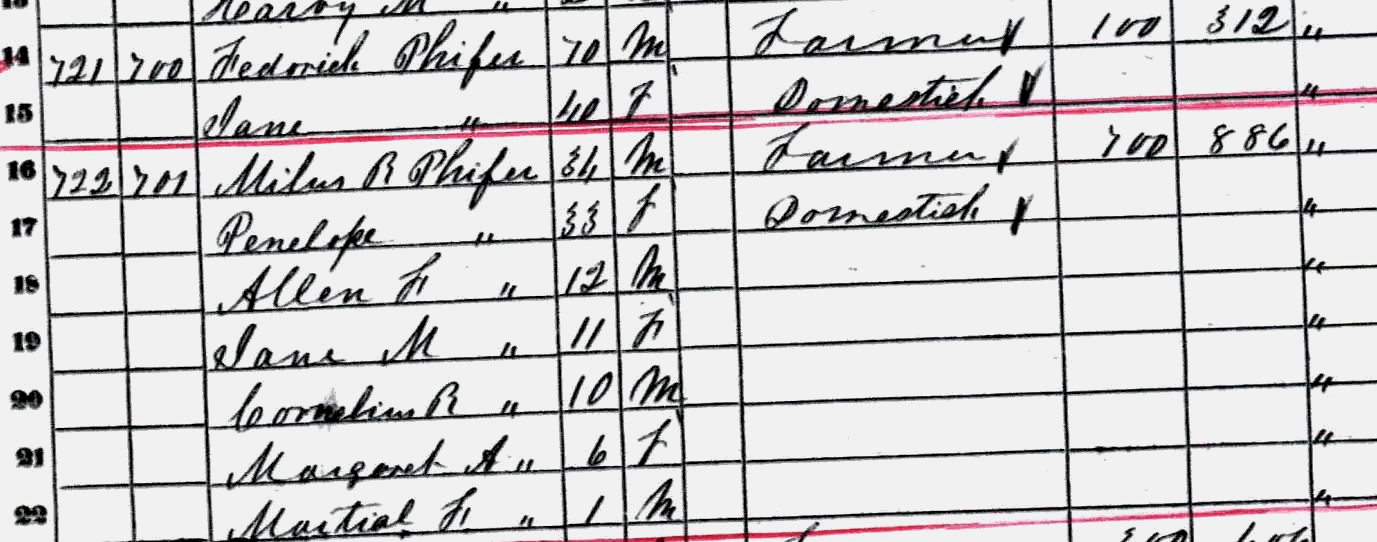 Harvy M "
14 721 700 Fedorick Phifer 70 M Farmer 100 312 "
15 Jane " 40 F Domestick "
16 722 701 Milus R Phifer 34 M Farmer 700 886 "
17 Penelope " 33 f Domestick "
18 Allen F " 12 M "
19 Jane M " 11 F "
20 Cornelius R " 10 M "
21 Margaret A " 6 F "
22 Martial F " 1 M "